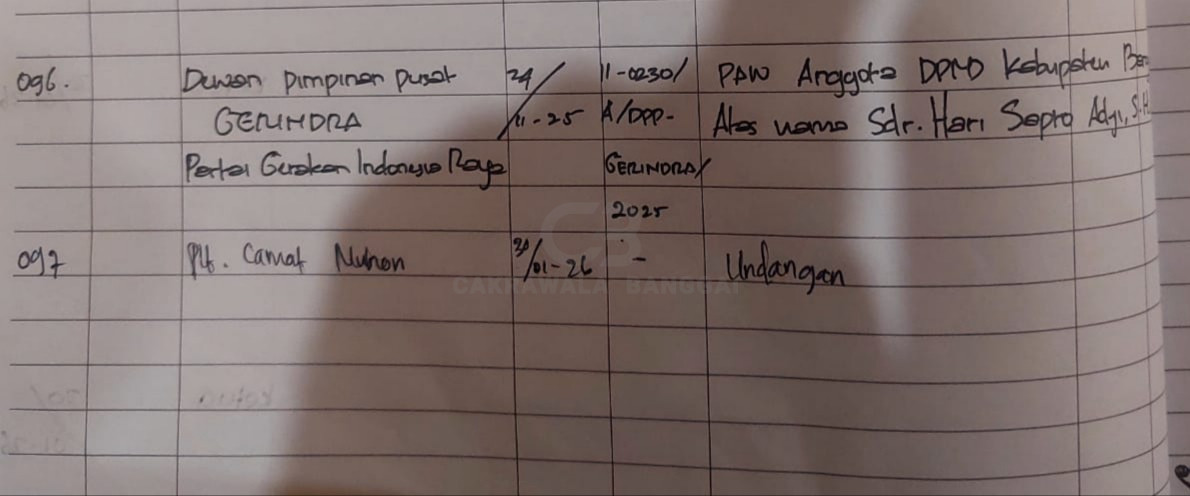 096. Dewan Pimpinan Pusat 24/ 11-0230/ PAW Anggota DPRD Kabupaten
GERINDRA 11-25 A/DPP- Atas nama Sdr. Hari Sapto Adji, S.H
Partai Gerakan Indonesia Raya GERINDRA/
2025
097 Plt. Camat Nuhon 30/01-26 - Undangan
CAKRAWALA BANGGAI